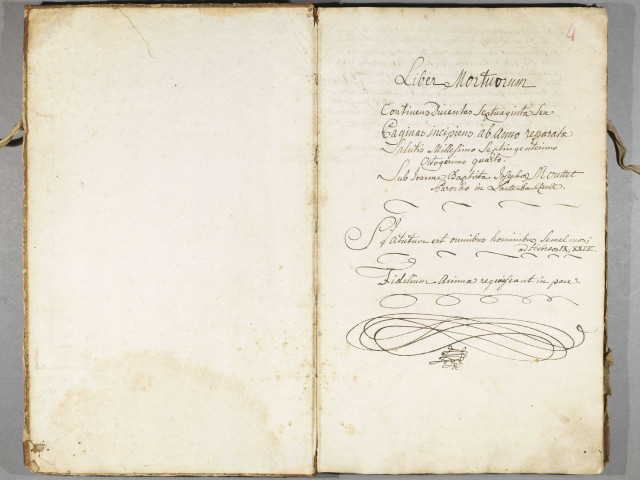 4
Liber Mortuorum
Continens Ducentas Septuaginta Sex
Paginas incipiens ab Anno reparatæ
Salutis Millesimo Septingentesimo
Octogesimo quarto.
Sub Joanne Baptista Josepho Mouttet
Parocho in
Statutum est omnibus hominibus semel mori
ad Hebræos IX. XXVII.
Fidelium Animæ requiescant in pace.